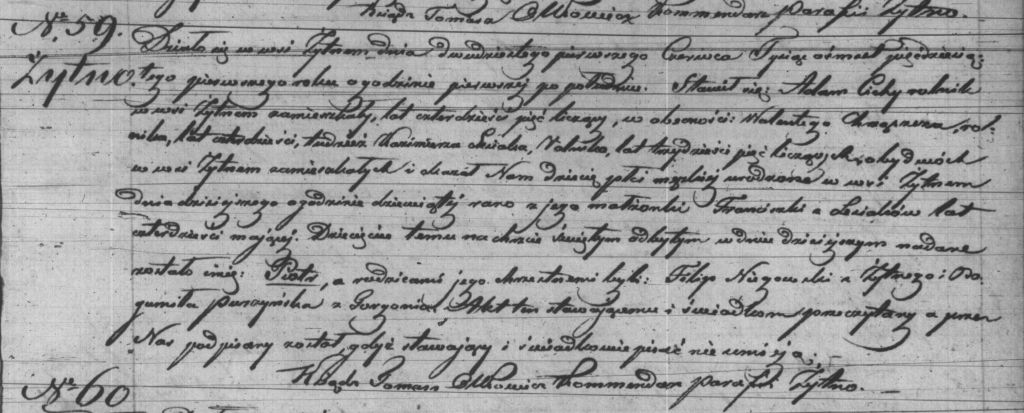 Ksiądz Tomasz Olkowicz Kommendarz parafii Żytno.
№ 59.
Żytno.
Działo się w wsi Żytnem dnia dwudziestego pierwszego Czerwca Tysiąc ośmset pięćdziesią:
tego pierwszego roku o godzinie pierwszej po południu. Stawił się: Adam Cichy rolnik
w wsi Żytnem zamieszkały, lat czterdzieści pięć liczący, w obecności: Walentego rol:
nika, lat czterdzieści, tudzież Kazimierza lat trzydzieści pięć liczących, obydwóch
w wsi Żytnem zamieszkałych i okazał Nam dziecię płci męzkiej urodzone w wsi Żytnem
dnia dzisiejszego o godzinie dziewiątej rano z jego małżonki Franciszki z Lesiaków lat
czterdzieści mającej. Dziecięciu temu na chrzcie świętym odbytym w dniu dzisiejszym nadane
zostało imię: Piotr, a rodzicami jego chrzestnemi byli: Filip Niegowski z Żytnego i Bo
gumiła Puszyńska z Akt ten stawającemu i świadkom przeczytany a przez
Nas podpisany został, gdyż stawający i świadkowie pisać nie umieją.
Ksiądz Tomasz Olkowicz Kommendarz parafii Żytno.
№ 60